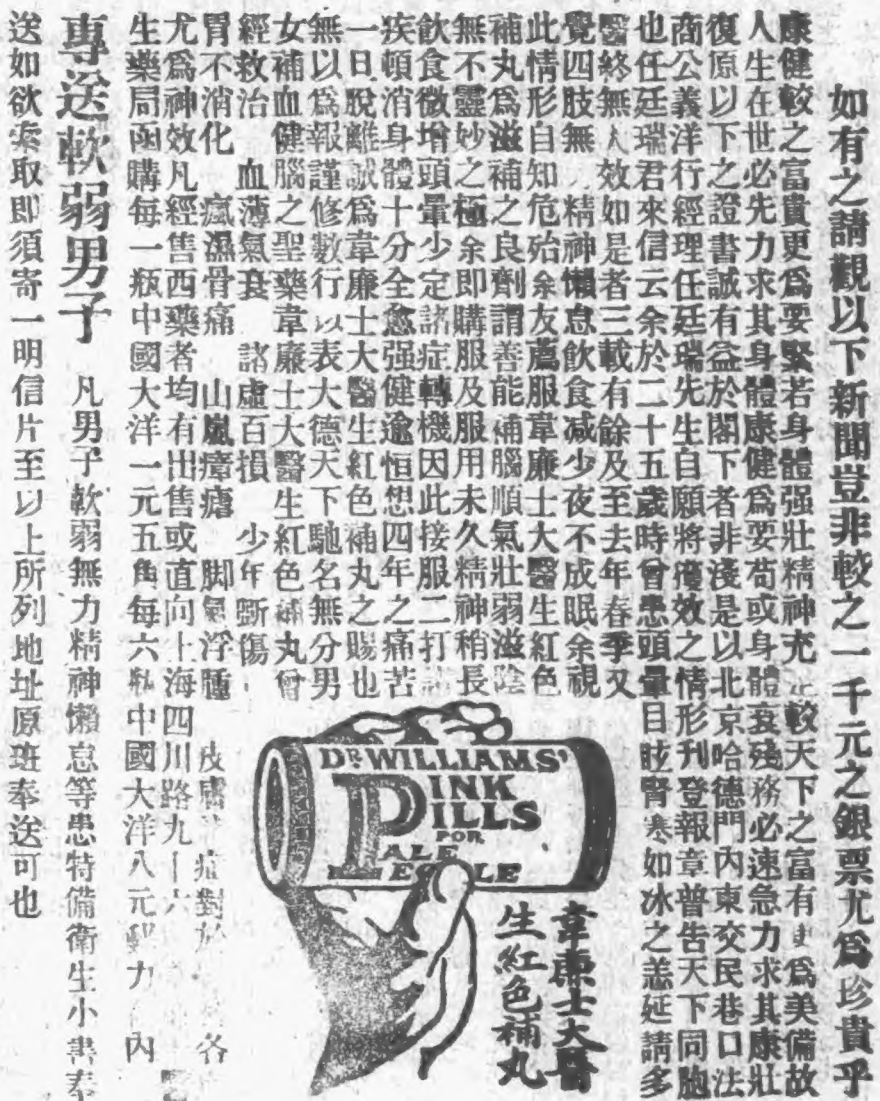 如有之請觀以下新聞豈非較之一千元之銀票尤爲珍貴乎
康健較之富貴更爲要緊若身體强壯精神充 較天下之富有 爲美備故
人生在世必先力求其身體康健爲要苟或身體衰殘務必速急力求其康壯
復原以下之證書誠有益於閣下者非淺是以北京哈德門內東交民巷口法
商公義洋行經理任廷瑞先生自願將獲效之情形刊登報章普告天下同胞
也任廷瑞君來信云余於二十五歲時曾患頭暈目眩腎寒如冰之恙延請多
醫終無 效如是者三載有餘及至去年春季又
覺四肢無 精神懶怠飲食减少夜不成眠余視
此情形自知危殆余友薦服韋廉士大醫生紅色
補丸爲滋補之良劑謂善能補腦順氣壯弱滋陰
無不靈妙之極余即購服及服用未久精神稍長
飲食微增頭暈少定諸症轉機因此接服二打
疾頓消身體十分全愈强健逾恒想四年之痛苦
一日脫離誠爲韋廉士大醫生紅色補丸之賜也
無以爲報謹修數行以表大德天下馳名無分男
女補血健腦之聖藥韋廉士大醫生紅色補丸曾
經救治 血薄氣衰 諸虛百損 少年斲傷
胃不消化 瘋濕骨痛 山嵐瘴瘧 脚氣浮腫 皮膚 症對於 各
尤爲神效凡經售西藥者均有出售或直向上海四川路九十六
生藥局函購每一瓶中國大洋一元五角每六瓶中國大洋八元郵力 內
專送軟弱男子 凡男子軟弱無力精神懶怠等患特備衛生小書奉
送如欲索取即須寄一明信片至以上所列地址原班奉送可也
DR WILLIAMS'
PINK
PILLS
FOR
PALE
PEOPLE
韋廉士大醫
生紅色補丸